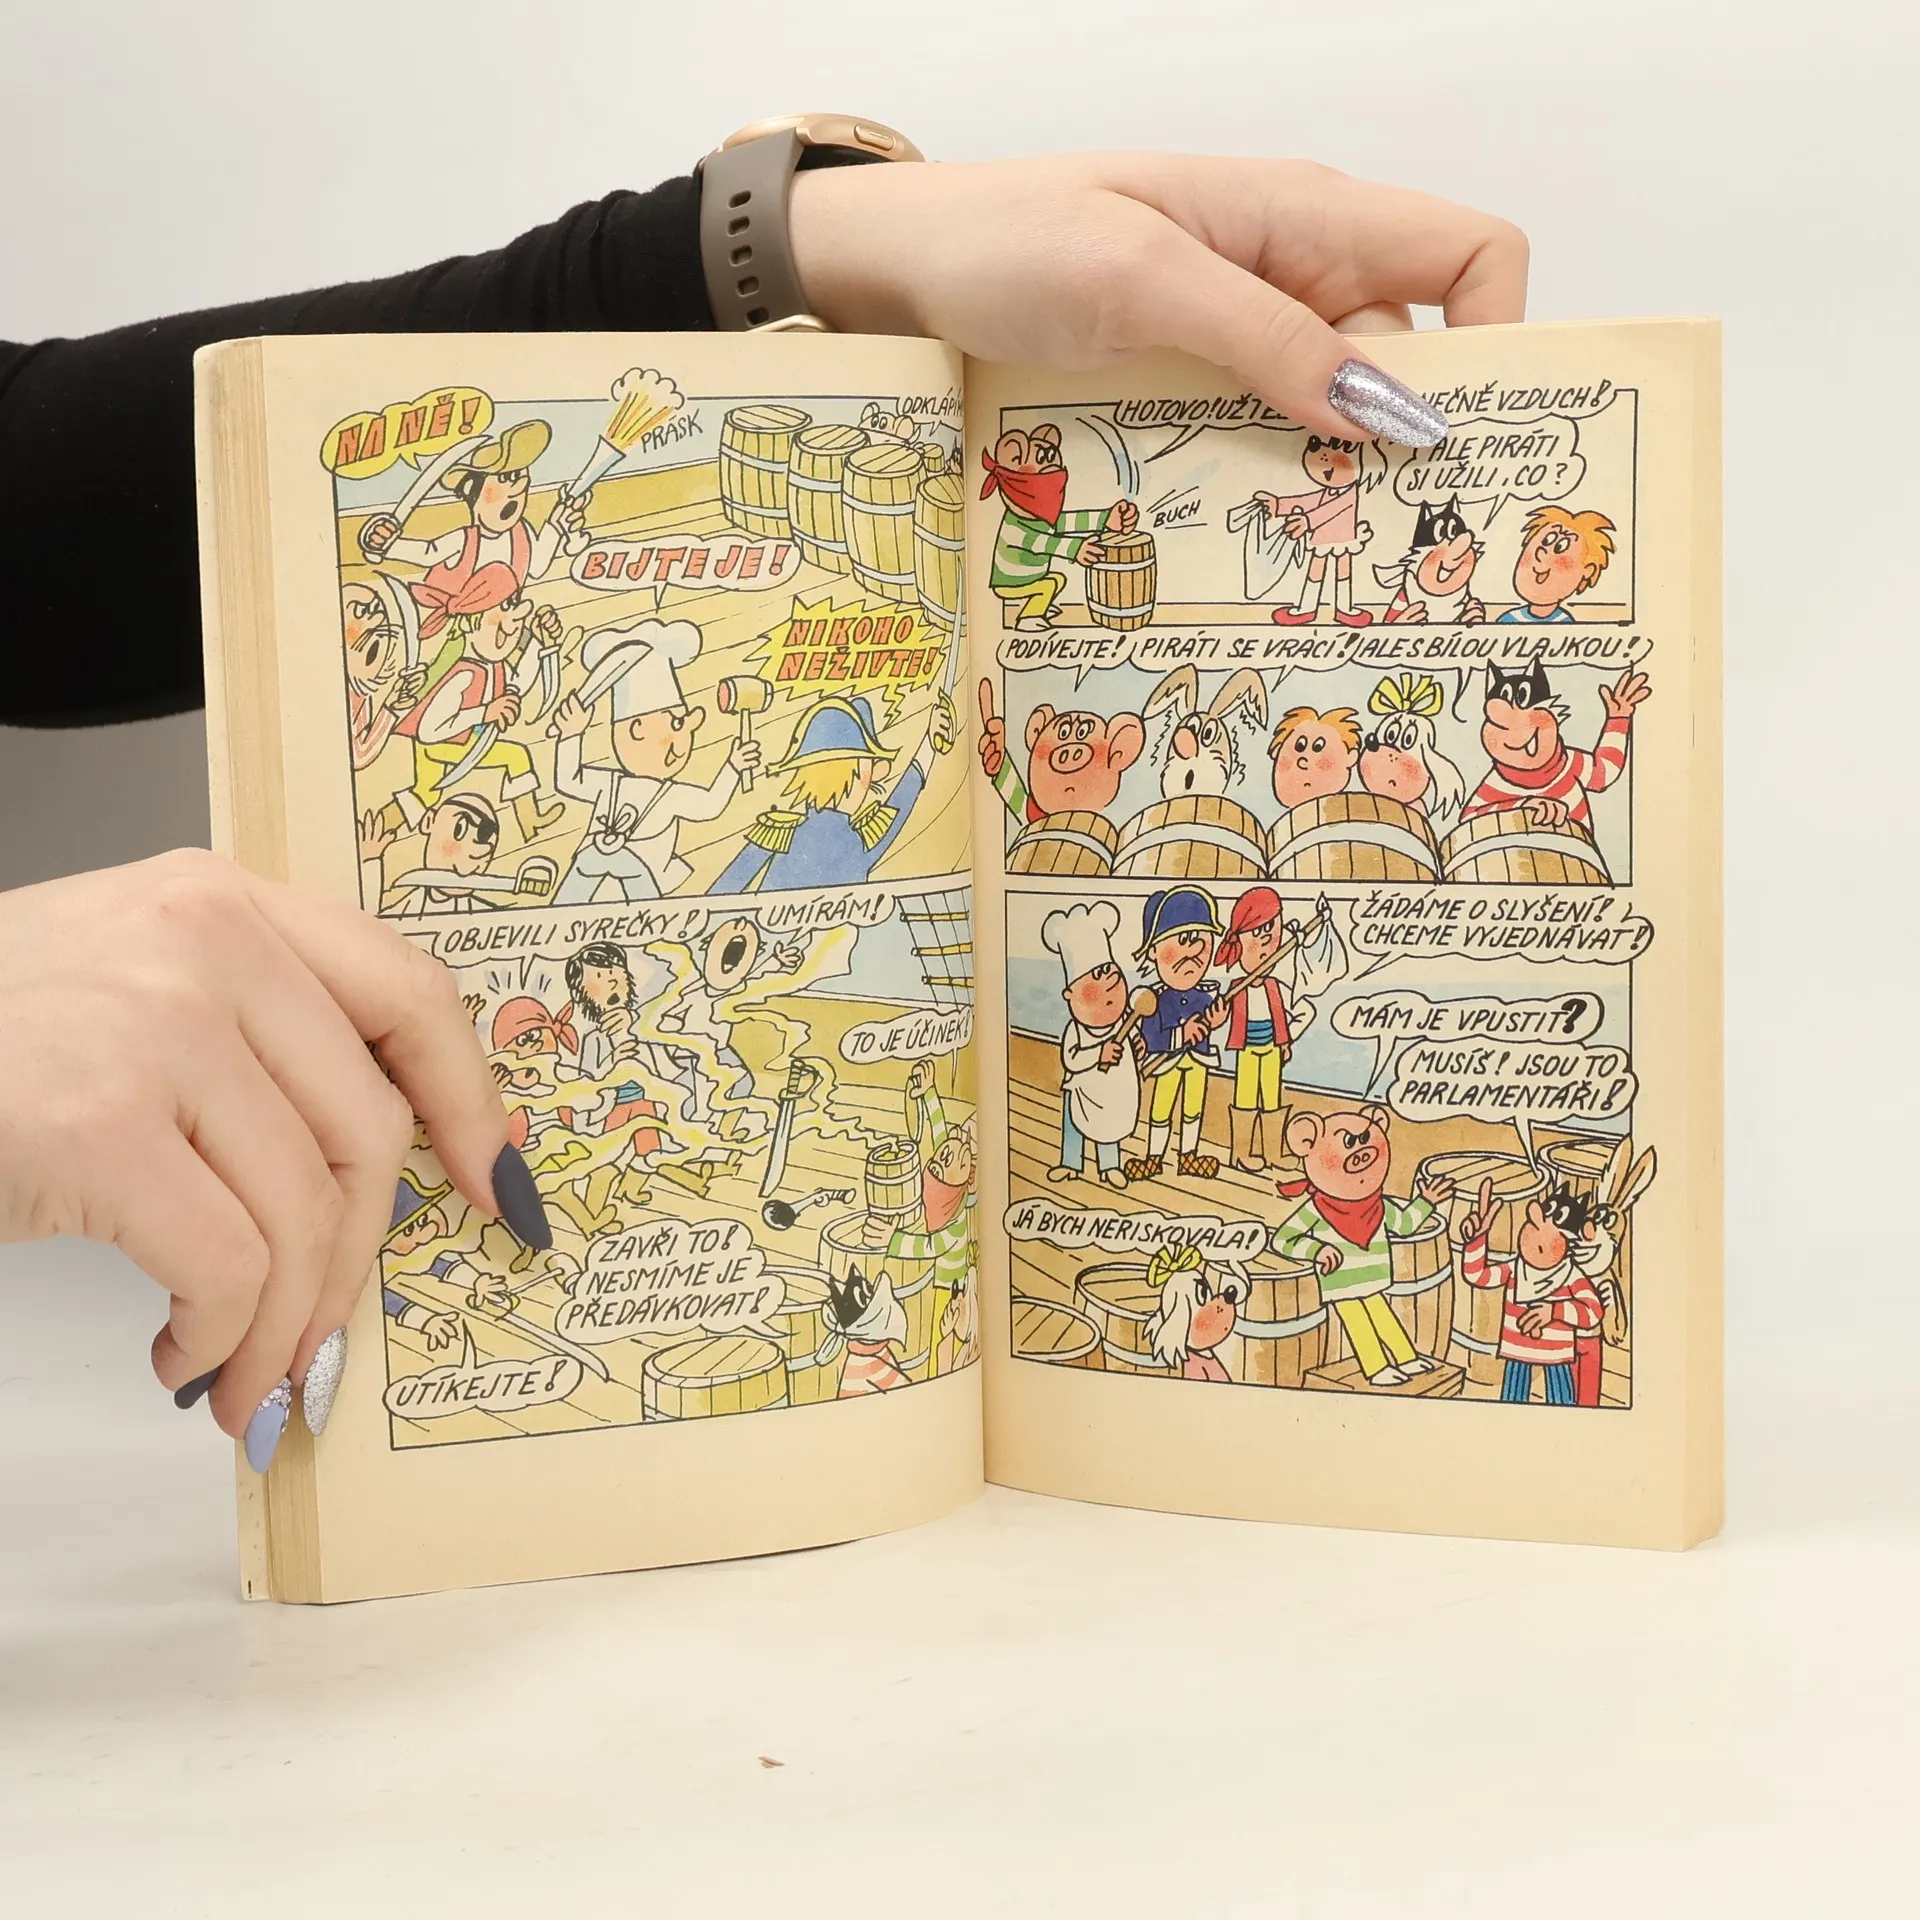 NA NĚ!
PRÁSK
BIJTE JE!
NIKOHO
NEŽIVTE!
OBJEVILI SYREČKY!
UMÍRÁM!
TO JE ÚČINEK!
ZAVŘI TO!
NESMÍME JE
PŘEDÁVKOVAT!
UTÍKEJTE!
HOTOVO!
VZDUCH!
ALE PIRÁTI
SI UŽILI, CO?
BUCH
PODÍVEJTE!
PIRÁTI SE VRACÍ!
ALE S BÍLOU VLAJKOU!
ŽÁDÁME O SLYŠENÍ!
CHCEME VYJEDNÁVAT!
MÁM JE VPUSTIT?
MUSÍŠ! JSOU TO
PARLAMENTÁŘI!
JÁ BYCH NERISKOVALA!